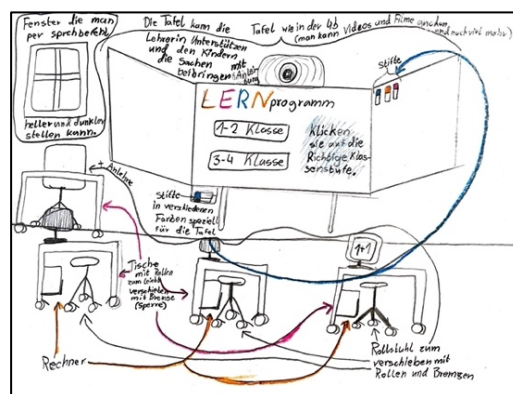 Fenster die man
per sprchbefehl
heller und dunkler
stellen kann.
Die Tafel kann die
Lehrerin Unterstützen
und den Kindern
die Sachen mit
beibringen
Tafel wie in der 4b
(man kann Videos und Filme anschauen
und noch viel mehr)
Stifte
LERNprogramm
1-2 Klasse
3-4 Klasse
Klicken
sie auf die
Richtige Klas-
senstufe.
+ Anlehne
Stifte
in verschiedenen
Farben speziell
für die Tafel
1+1
Tische
mit Rollen
zum leicht
verschieben
mit Bremse
(Sperre)
Rechner
Rollstuhl zum
verschieben mit
Rollen und Bremsen